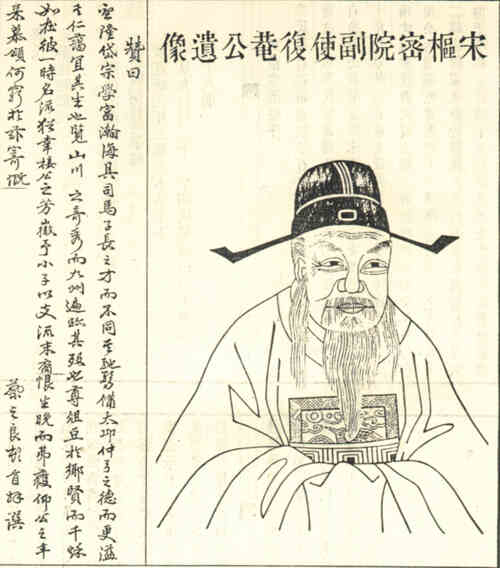 宋樞密院副使復菴公遺像
贊曰
望隆岱宗學富瀚海具司馬子長之才而不同其馳騖備太邱仲弓之德而更溢
其仁藹宜其生也覽山川之奇秀而九州遍歷其歿也尊俎豆於鄉賢而千秋
如在彼一時名流猶幸接公之芳徽予小子以文流末裔恨生晚而弗獲仰公之丰
采慕頌何窮於詠寄慨
蔡之良頓首拜撰